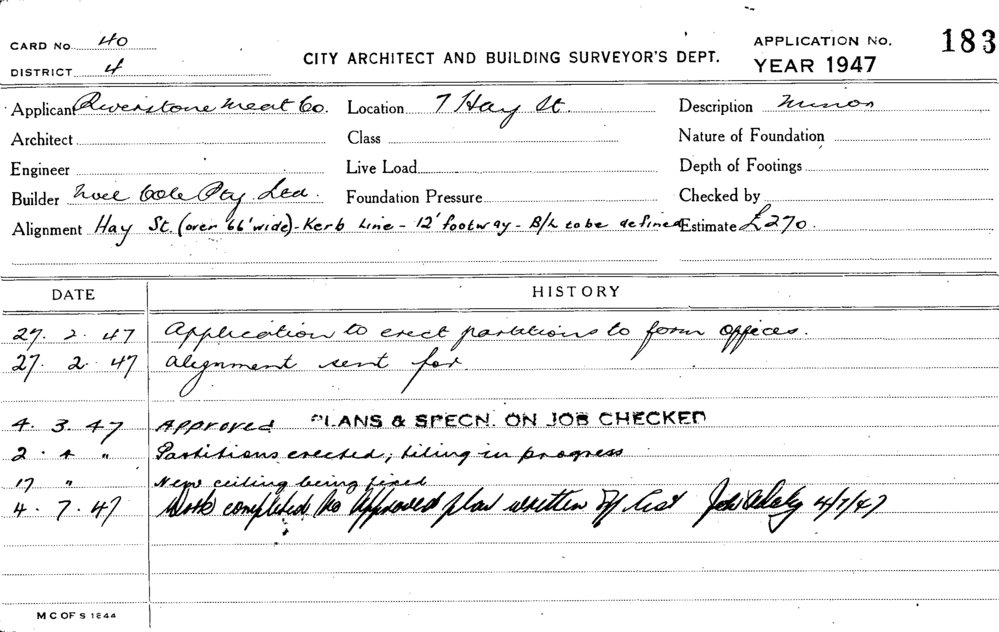 CARD No. 40
DISTRICT 4
CITY ARCHITECT AND BUILDING SURVEYOR'S DEPT.
APPLICATION No. 183
YEAR 1947
Applicant Riverstone Meat Co. Location 7 Hay St. Description Minor
Architect Class Nature of Foundation
Engineer Live Load Depth of Footings
Builder Noel Cole Pty Ltd. Foundation Pressure Checked by
Alignment Hay St. (over 66' wide) - Kerb Line - 12' footway - B/L to be defined Estimate £270.
DATE HISTORY
27. 2. 47 Application to erect partitions to form offices.
27. 2 47 Alignment sent for
4. 3. 47 Approved PLANS & SPECN. ON JOB CHECKED
2. 4 " Partitions erected, tiling in progress
17 " New ceiling being fixed
4. 7. 47 Work completed to Approved plan written off list 4/7/47
M C OF S 1844